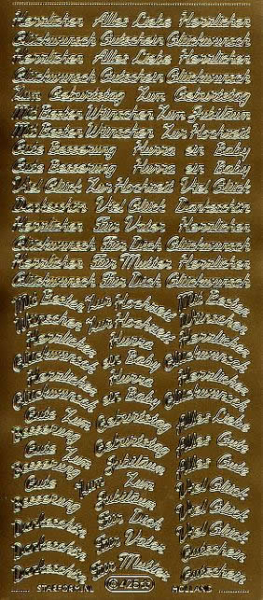 Herzlichen Alles Liebe Herzlichen
Glückwunsch Gutschein Glückwunsch
Herzlichen Alles Liebe Herzlichen
Glückwunsch Gutschein Glückwunsch
Zum Geburtstag Zum Geburtstag
Mit Besten Wünschen Zum Jubiläum
Mit Besten Wünschen Zur Hochzeit
Gute Besserung Hurra ein Baby
Gute Besserung Hurra ein Baby
Viel Glück Zur Hochzeit Viel Glück
Dankeschön Viel Glück Dankeschön
Herzlichen Für Vater Herzlichen
Glückwunsch Für Dich Glückwunsch
Herzlichen Für Mutter Herzlichen
Glückwunsch Für Dich Glückwunsch
Mit Besten Zur Hochzeit Mit Besten
Wünschen Zur Hochzeit Wünschen
Herzlichen Hurra Herzlichen
Glückwunsch ein Baby Glückwunsch
Herzlichen Hurra Herzlichen
Glückwunsch ein Baby Glückwunsch
Gute Zum Alles Liebe
Besserung Geburtstag Alles Gute
Gute Zum Alles Liebe
Besserung Geburtstag Alles Gute
Gute Zum Viel Glück
Besserung Jubiläum Viel Glück
Dankeschön Zum Jubiläum Viel Glück
Dankeschön Für Dich Viel Glück
Dankeschön Für Vater Gutschein
Dankeschön Für Mutter Gutschein
STARFORM INC. HOLLAND